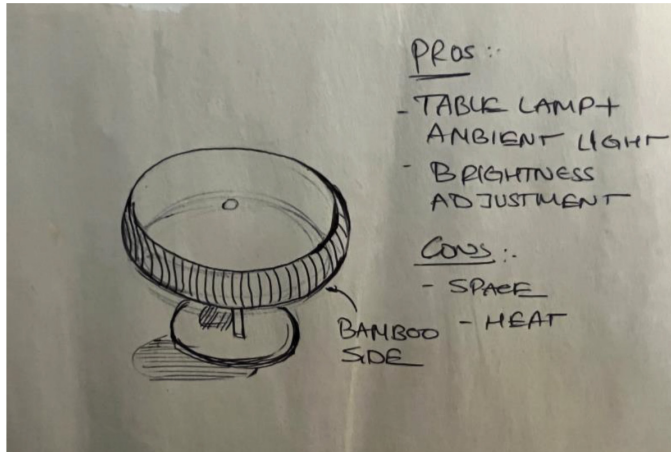 PROS :-
- TABLE LAMP +
AMBIENT LIGHT
- BRIGHTNESS
ADJUSTMENT
CONS :-
- SPACE
- HEAT
BAMBOO
SIDE